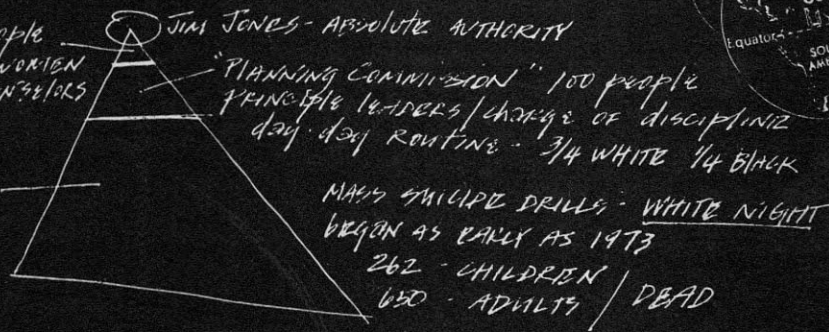 JIM JONES - ABSOLUTE AUTHORITY
WOMEN
"PLANNING COMMISSION" 100 people
PRINCIPLE LEADERS / CHARGE OF DISCIPLINE
day-day ROUTINE - 3/4 WHITE 1/4 BLACK
MASS SUICIDE DRILLS - WHITE NIGHT
BEGAN AS EARLY AS 1973
262 - CHILDREN
650 - ADULTS / DEAD
Equator